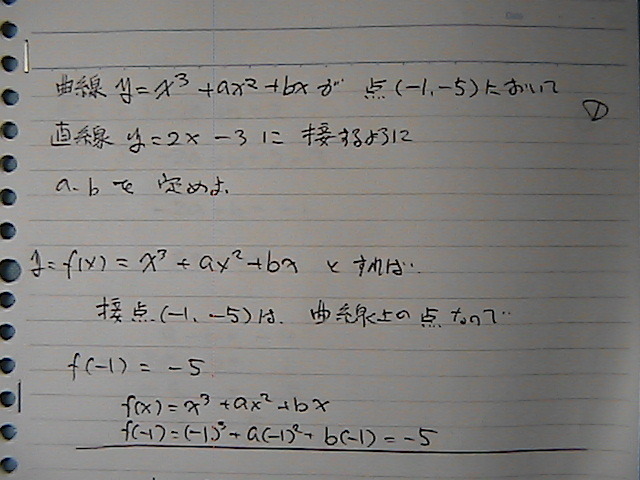 曲線 y=x³+ax²+bxが 点(-1,-5)において
①
直線 y=2x-3に 接するように
a.bを 定めよ.
y=f(x)=x³+ax²+bx とすれば..
接点(-1,-5)は. 曲線上の点なので
f(-1)=-5
f(x)=x³+ax²+bx
f(-1)=(-1)³+a(-1)²+b(-1)=-5